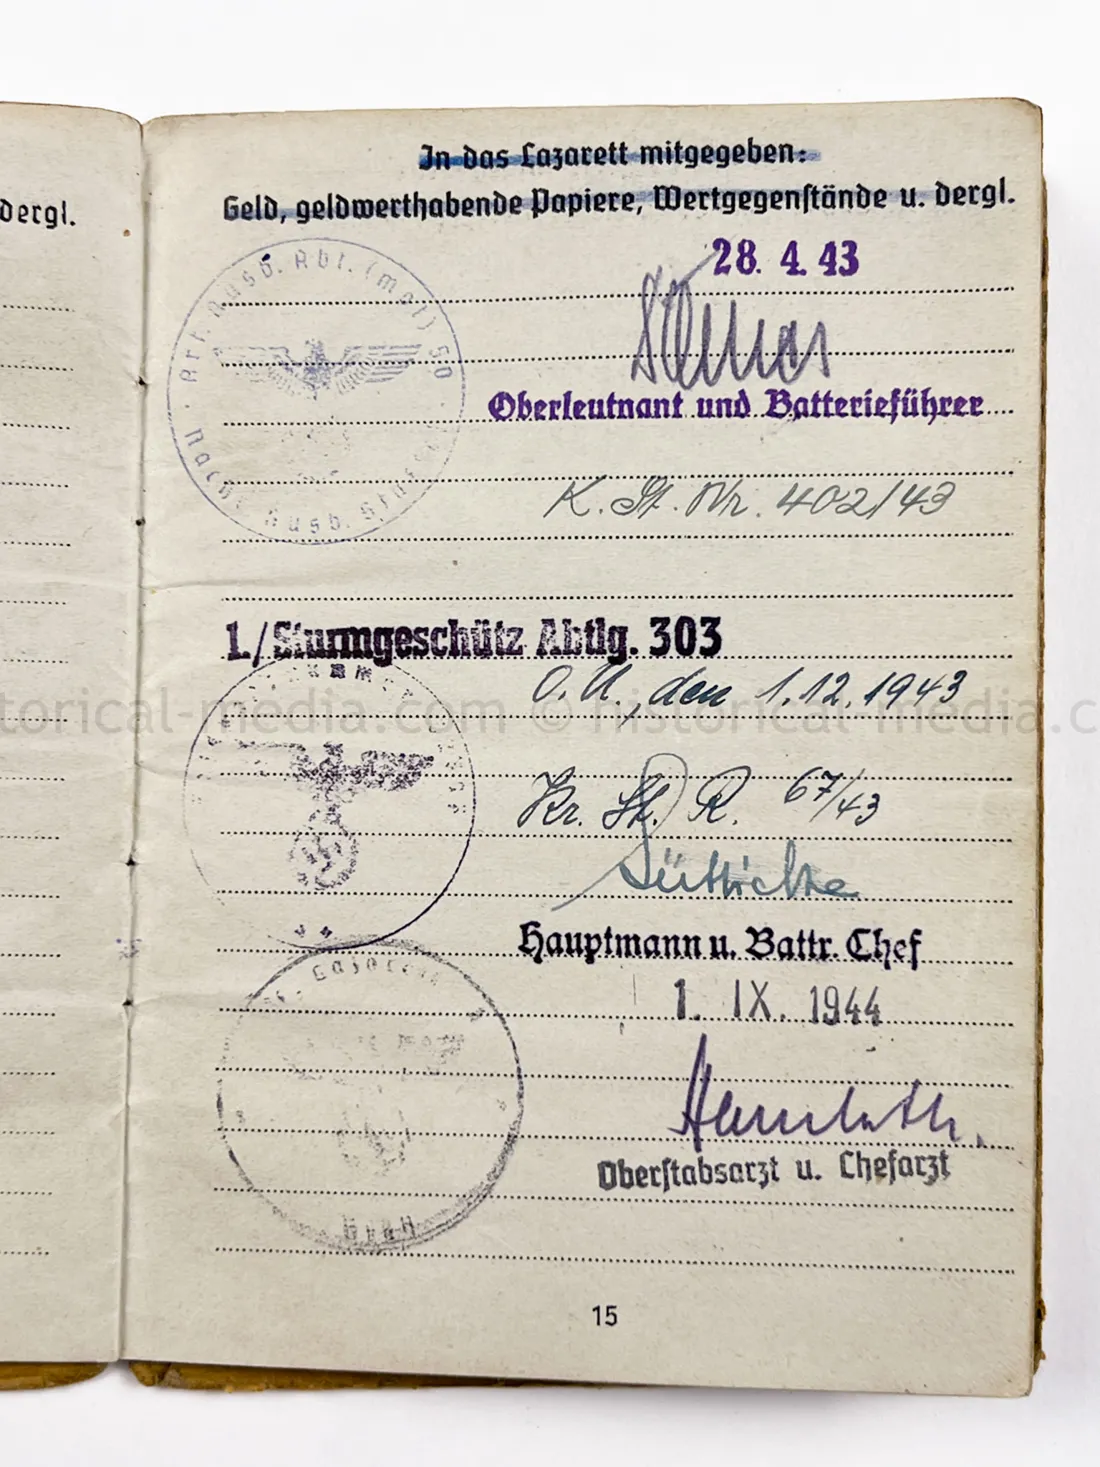 dergl.
In das Lazarett mitgegeben:
Geld, geldwerthabende Papiere, Wertgegenstände u. dergl.
28. 4. 43
Art. Ausb. Abt. (mot) 50
Oberleutnant und Batterieführer
K. St. Nr. 402/43
1./Sturmgeschütz Abtlg. 303
O. U., den 1.12.1943
historical-media.com © historical-media.c
Kr. St. R. 67/43
Hauptmann u. Battr. Chef
Lazarett
1. IX. 1944
Oberstabsarzt u. Chefarzt
15